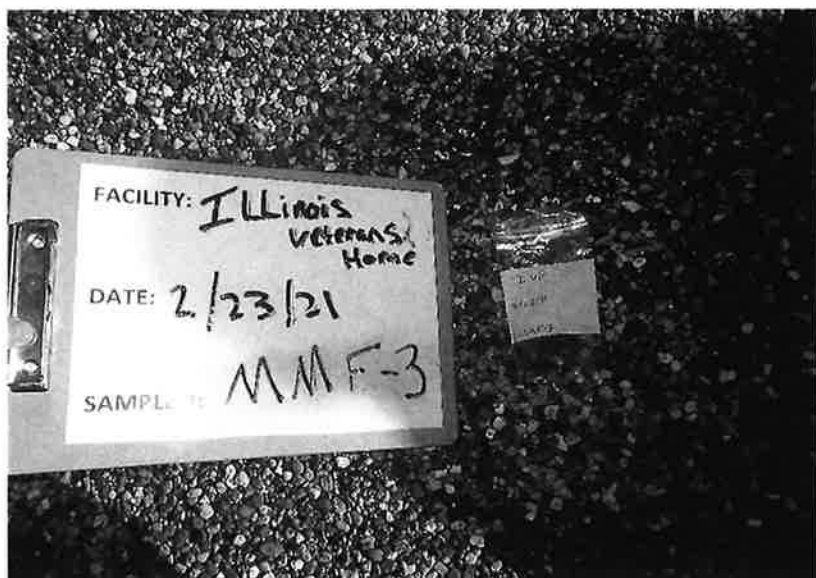 FACILITY: ILLinois
Veterans
Home
DATE: 2/23/21
SAMPLE MMF-3